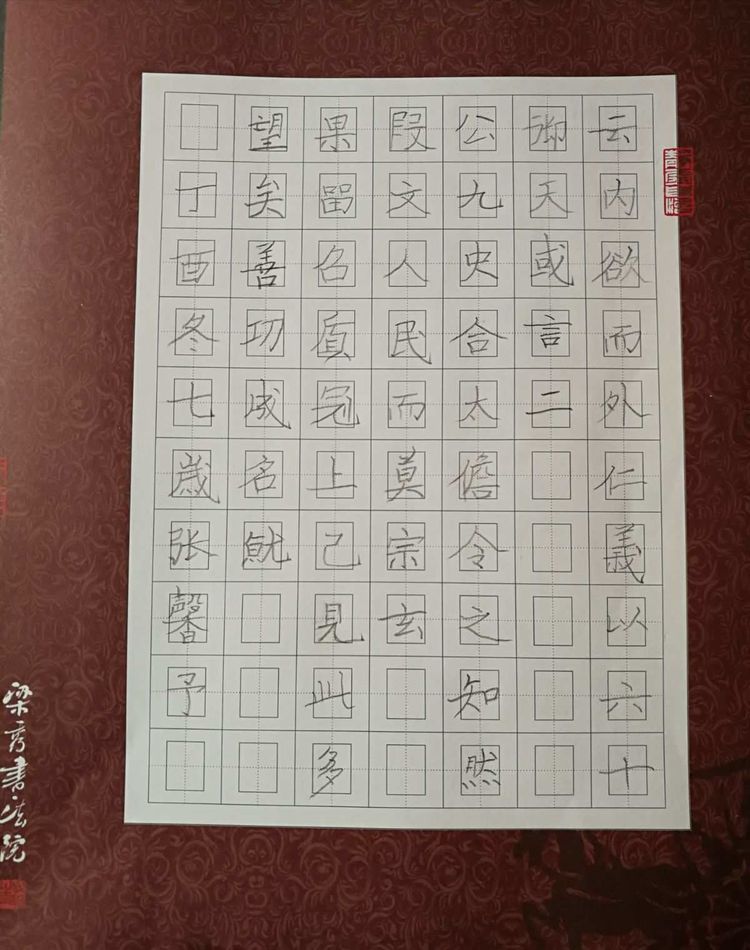 云内欲而外仁義以六十
御天或言二
公九史合太儋令之知然
段文人民而莫宗玄
果留召質冠上己見此多
望矣善功成名魷
丁酉冬七歲张馨予
梁秀書法院